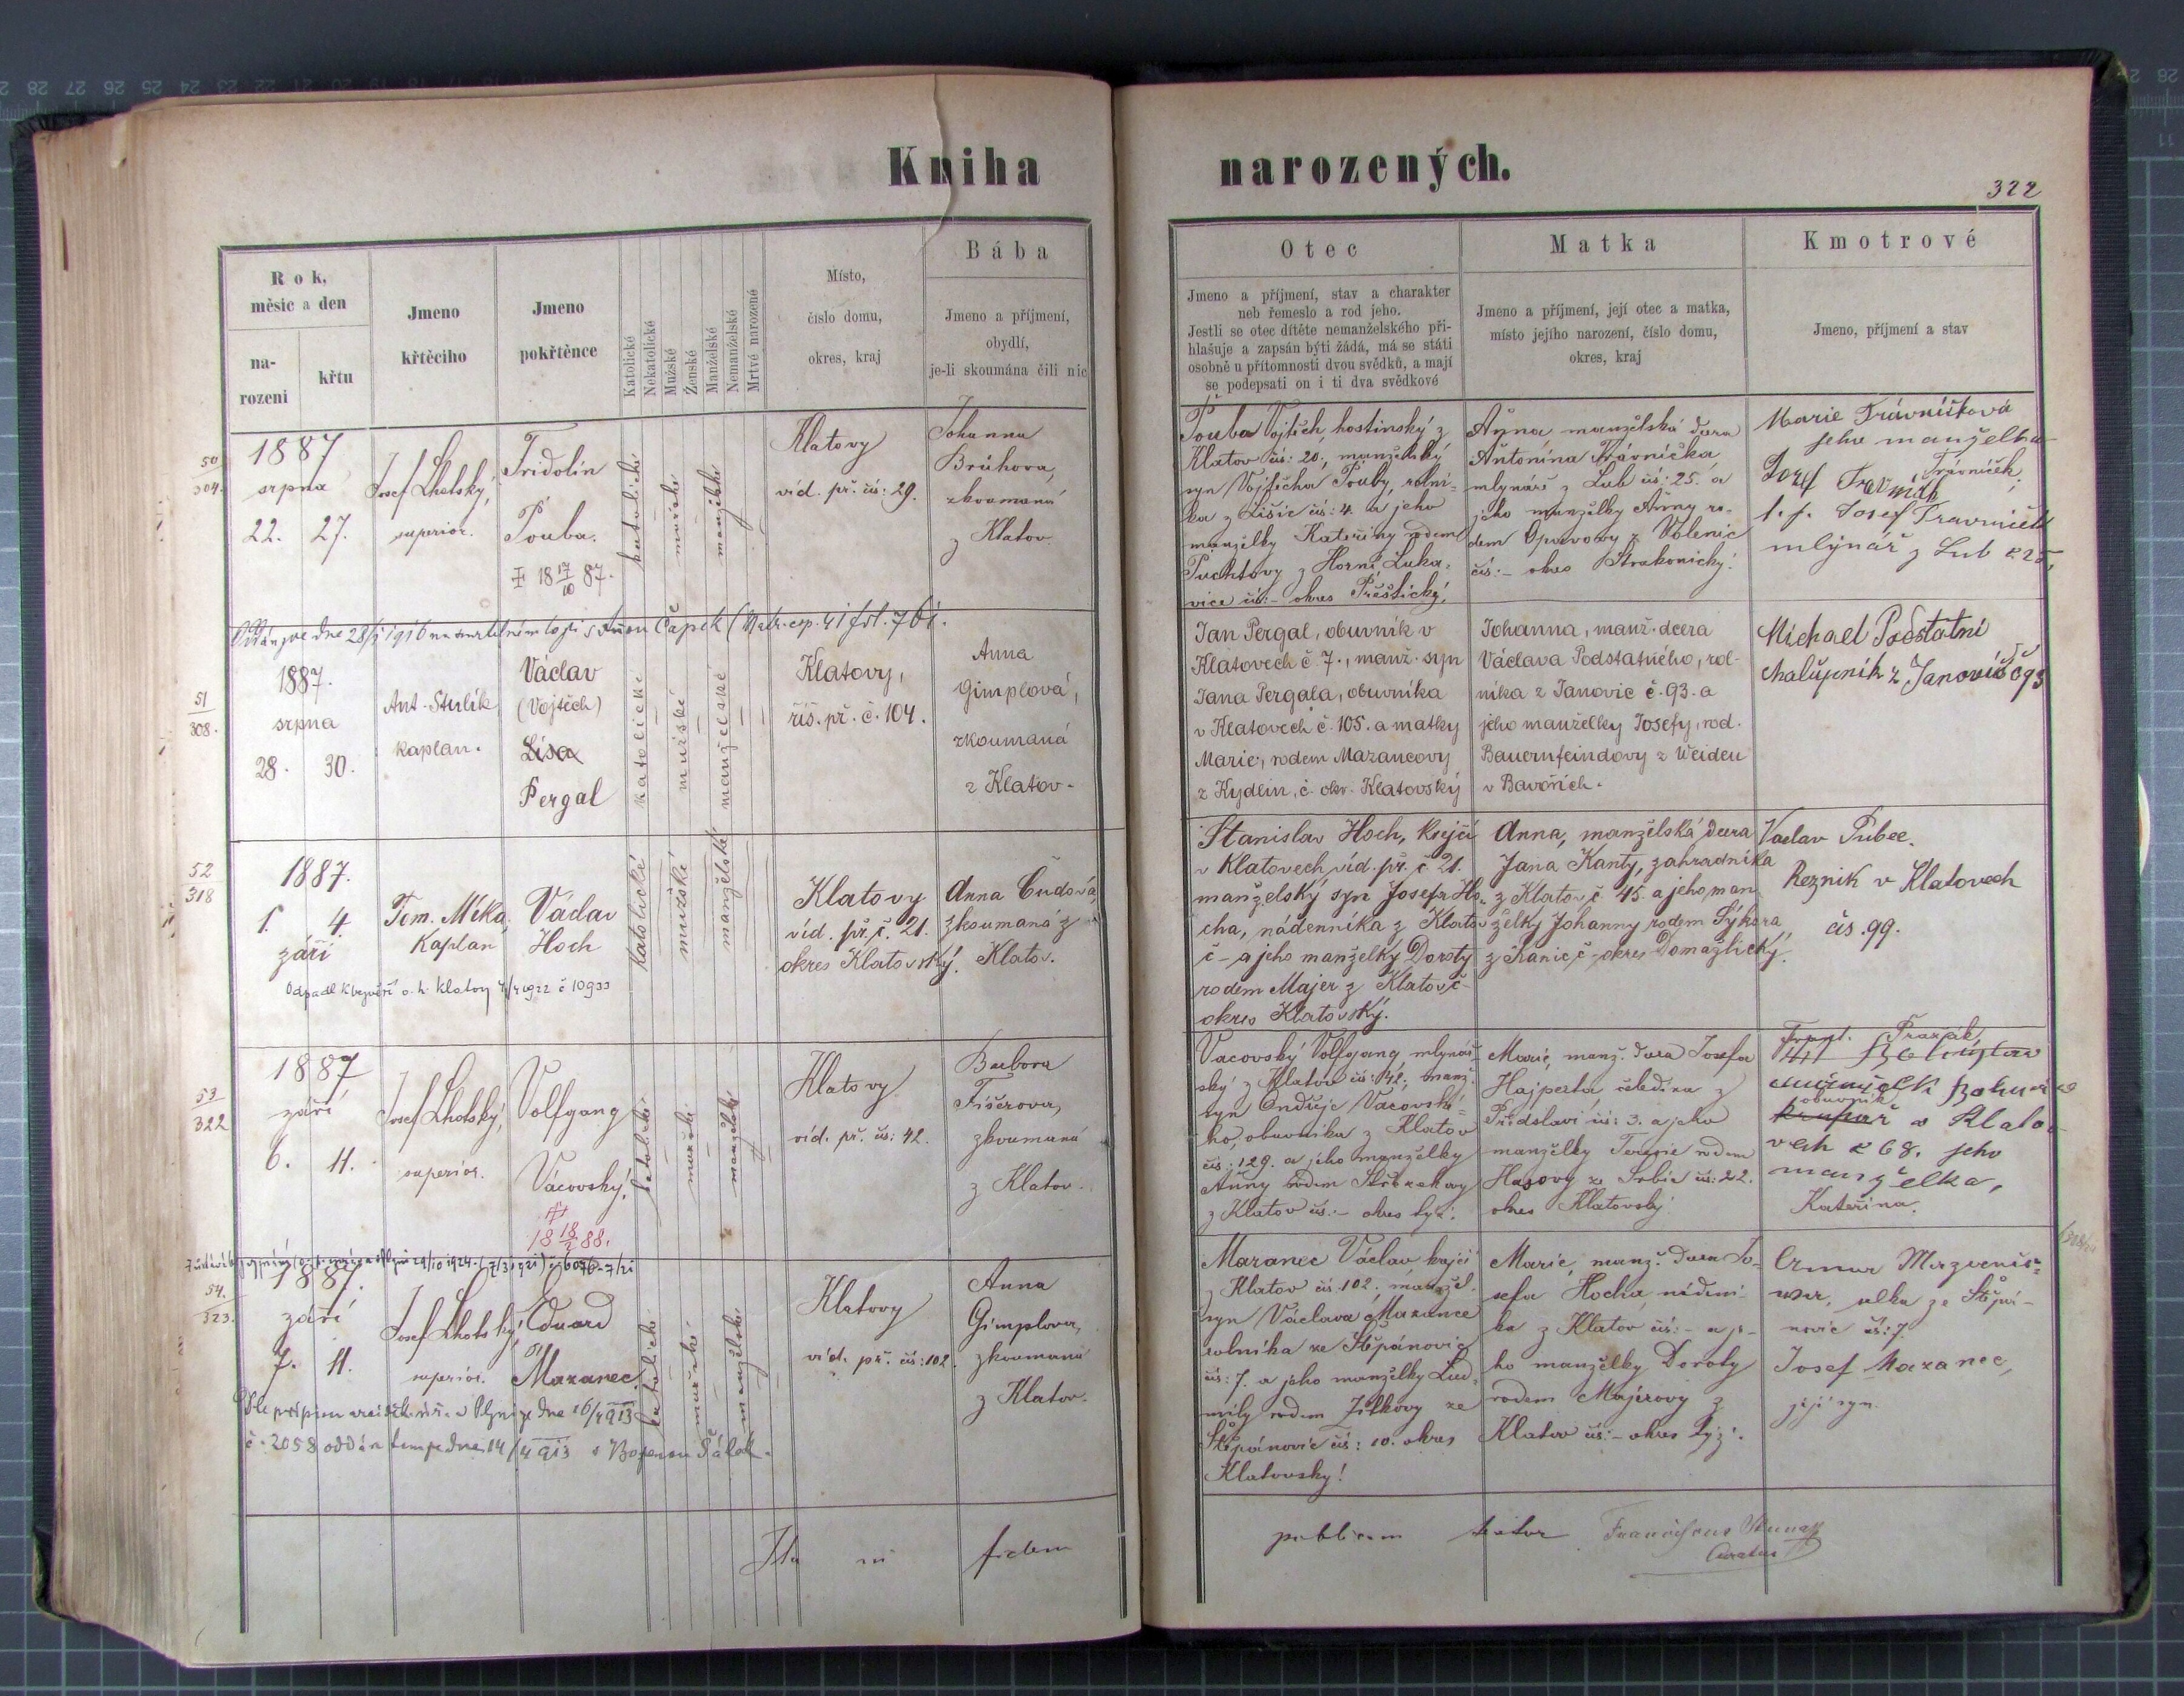 Kniha
narozených.
322
Rok,
měsíc a den
na-
rozeni
křtu
Jmeno
křtěciho
Jmeno
pokřtěnce
Katolické
Nekatolické
Mužské
Ženské
Manželské
Nemanželské
Mrtvé narozené
Místo,
číslo domu,
okres, kraj
Bába
Jmeno a příjmení,
obydlí,
je-li skoumána čili nic
Otec
Jmeno a příjmení, stav a charakter
neb řemeslo a rod jeho.
Jestli se otec dítěte nemanželského při-
hlašuje a zapsán býti žádá, má se státi
osobně u přítomnosti dvou svědků, a mají
se podepsati on i ti dva svědkové
Matka
Jmeno a příjmení, její otec a matka,
místo jejího narození, číslo domu,
okres, kraj
Kmotrové
Jmeno, příjmení a stav
50
304.
1887
srpna
22. 27.
Josef Lhotský,
superior.
Fridolín
Pouba.
18 17/10 87.
katolické
mužské
manželské
Klatovy
víd. př. čís: 29.
Johanna
Brúhova,
zkoumaná
z Klatov.
Pouba Vojtěch, hostinský z
Klatov čís: 20., manželský
syn Vojtěcha Pouby, rolní-
ka z Lišic čís: 4. a jeho
manželky Kateřiny rodem
Puchtovy z Horní Luka-
vice čís:- okres Přeštický.
Anna manželská dcera
Antonína Trávníčka
mlynáře z Lub čís: 25. a
jeho manželky Anny ro-
dem Opavovy z Volenic
čís:- okres Strakonický.
Marie Trávníčková
jeho manželka
Trávníček,
Josef Travníček
t. j. Josef Travníček
mlýnář z Lub č 25,
Oddán dne 28/ 1916 s Annou Čapek
51
308.
1887.
srpna
28. 30.
Ant. Stulík
kaplan.
Václav
(Vojtěch)
Lisa
Pergal
katolické
mužské
manželské
Klatovy,
říš. př. č. 104.
Anna
Gimplová,
zkoumaná
z Klatov.
Jan Pergal, obuvník v
Klatovech č. 7., manž. syn
Jana Pergala, obuvníka
v Klatovech č. 105. a matky
Marie, rodem Mazancovy
z Kydlin, č. okr. Klatovský
Johanna, manž. dcera
Václava Podstatného, rol-
níka z Janovic č. 93. a
jeho manželky Josefy, rod.
Bauernfeindovy z Weiden
v Bavořích.
Michael Podstatní
Chalupník z Janovic č 93
52
318
1887.
1. 4.
září
Tom. Míka,
Kaplan
Václav
Hoch
katolické
mužské
manželské
Klatovy
víd. př. č. 21.
okres Klatovský.
Anna Čudová,
zkoumaná z
Klatov.
Odpadl k bezvěří o. h. Klatovy 4/4 1922 č 10933
Stanislav Hoch, krejčí
v Klatovech víd. př. č 21.
manželský syn Josefa Ho-
cha, nádenníka z Klatov
č - a jeho manželky Doroty
rodem Majer z Klatov č -
okres Klatovský.
Anna, manželská dcera
Jana Kanty, zahradníka
z Klatov č 45. a jeho man-
želky Johanny rodem Sýkora
z Kanic, č - okres Domažlický.
Vaclav Pubec.
Řezník v Klatovech
čís. 99.
53
322
1887
září
6. 11.
Josef Lhotský,
superior.
Volfgang
Vácovský.
18 18/2 88.
katolické
mužské
manželské
Klatovy
víd. př. čís: 42.
Barbora
Fišerova,
zkoumaná
z Klatov.
Vacovský Volfgang, mlynář-
ský z Klatov čís: 42., manž.
syn Ondřeje Vacovské-
ho, obuvníka z Klatov
čís: 129. a jeho manželky
Anny rodem
z Klatov čís:- okres týž.
Marie, manž. dcera Josefa
Hajperta, čeledína z
Předslavi čís: 3. a jeho
manželky Terezie rodem
Hasovy ze Srbic čís: 22.
okres Klatovský.
Frant. Pražák,
obuvník
v Klato-
vech č 68. jeho
manželka,
Kateřina.
54.
323.
1887.
září
7. 11.
Josef Lhotský,
superior.
Eduard
Mazanec
katolické
mužské
manželské
Klatovy
víd. př. čís: 102.
Anna
Gimplova,
zkoumaná
z Klatov.
Dle v Plzni ze dne 16/4 1913
č. 2058 oddán tamže dne 14/4 1913 s Boženou Šálek.
Mazanec Václav krejčí
z Klatov čís 102., manžel.
syn Václava Mazance
rolníka ze Štěpánovic
čís: 7. a jeho manželky Lud-
mily rodem Jílkovy ze
Štěpánovic čís: 10. okres
Klatovský!
Marie, manž. dcera Jo-
sefa Hocha, nádení-
ka z Klatov čís:- a je-
ho manželky Doroty
rodem Majerovy z
Klatov čís:- okres týž.
Anna
ze Štěpá-
novic čís: 7.
Josef Mazanec,
její syn.
Ita in fidem
publicam testor Franciscus
Curatus